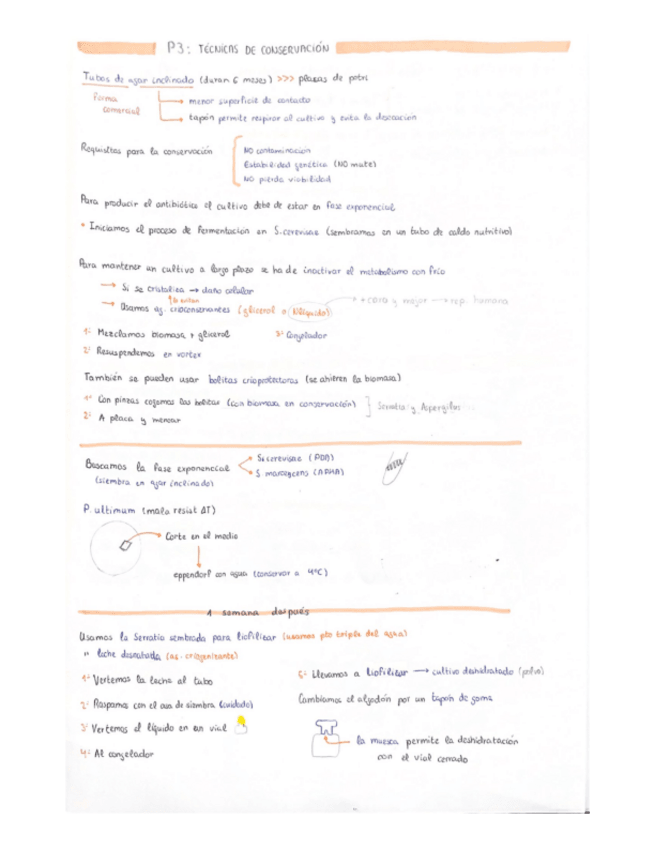 P3: TÉCNICAS DE CONSERVACIÓN
Tubos de agar inclinado (duran 6 meses) >>> placas de petri
Forma comercial
menor superficie de contacto
tapón permite respirar al cultivo y evita la desecación
Requisitos para la conservación
NO contaminación
Estabilidad genética (NO mute)
NO pierda viabilidad
Para producir el antibiótico el cultivo debe de estar en fase exponencial
* Iniciamos el proceso de fermentación en S.cerevisae (sembramos en un tubo de caldo nutritivo)
Para mantener un cultivo a largo plazo se ha de inactivar el metabolismo con frío
→ Si se cristaliza → daño celular
lo evitan
→ Usamos ag. crioconservantes (glicerol o Nlíquido) → + caro y mejor → rep. humana
1º Mezclamos biomasa + glicerol
3º Congelador
2º Resuspendemos en vortex
También se pueden usar bolitas crioprotectoras (se ahieren la biomasa)
1º Con pinzas cogemos las bolitas (con biomasa en conservación)
Serratia y Aspergillus
2º A placa y menear
Buscamos la fase exponencial
S.cerevisae (PDB)
S marcescens (APHA)
(siembra en agar inclinado)
P. ultimum (mala resist ΔT)
Corte en el medio
eppendorf con agua (conservar a 4ºC)
1 semana después
Usamos la Serratia sembrada para liofilizar (usamos pto triple del agua)
" leche desnatada (ag. criogenizante)
1º Vertemos la leche al tubo
2º Raspamos con el asa de siembra (cuidado)
3º Vertemos el líquido en un vial
4º Al congelador
5º Llevamos a liofilizar → cultivo deshidratado (polvo)
Cambiamos el algodón por un tapón de goma
la muesca permite la deshidratación
con el vial cerrado